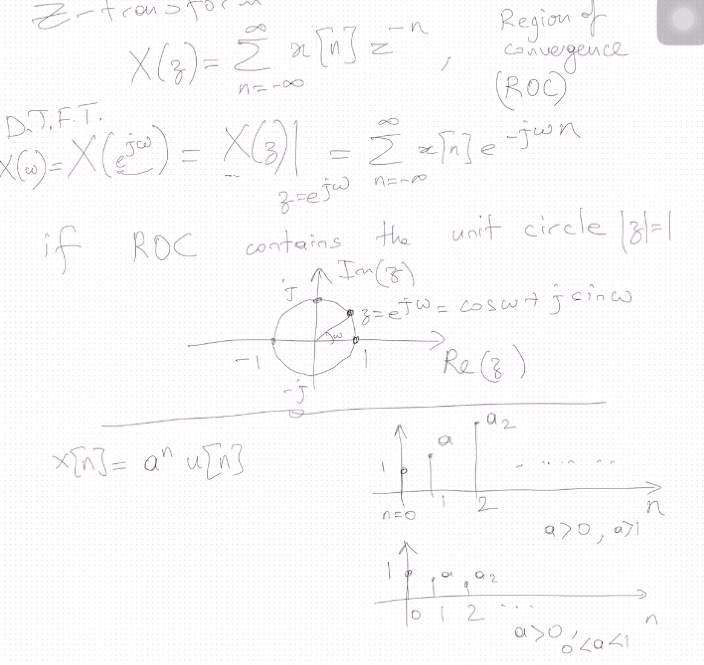 Z-transform
X(z) = ∑_{n=-∞}^{∞} x[n] z^{-n} , Region of convergence (ROC)
D.T.F.T.
X(ω) = X(e^{jω}) = X(z)|_{z=e^{jω}} = ∑_{n=-∞}^{∞} x[n] e^{-jωn}
if ROC contains the unit circle |z|=1
j Im(z)
z=e^{jω} = cosω + j sinω
ω
-1 1 Re(z)
-j
x[n] = a^n u[n]
1 a a2 ......
n=0 1 2 n
a>0, a>1
1 a a2
0 1 2 ... n
a>0, 0<a<1